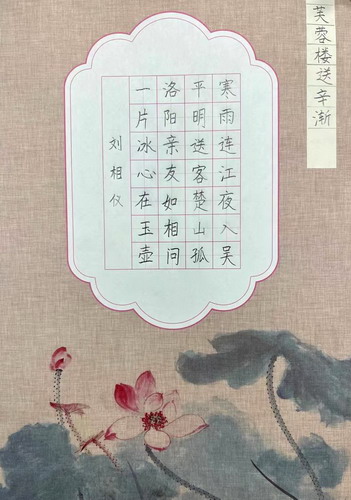 芙蓉楼送辛渐
寒雨连江夜入吴
平明送客楚山孤
洛阳亲友如相问
一片冰心在玉壶
刘相仪